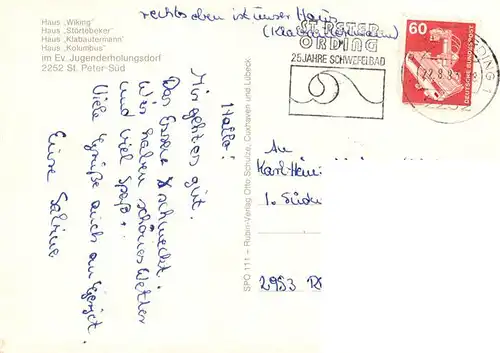 Haus „Wiking"
Haus „Störtebeker"
Haus „Klabautermann"
Haus „Kolumbus"
im Ev. Jugenderholungsdorf
2252 St. Peter-Süd
rechts oben ist unser Haus
(Klabautermann)
ST. PETER-
ORDING
25 JAHRE SCHWEFELBAD
60
DEUTSCHE BUNDESPOST
Hallo!
Mir geht es gut.
Das Essen schmeckt!
Wir haben schönes Wetter
und viel Spaß.
Viele Grüße auch an
Eure Sabine
SPO 111 – Rubin-Verlag Otto Schulze, Cuxhaven und Lübeck
An
Karl-Hein
1. Süder
2953